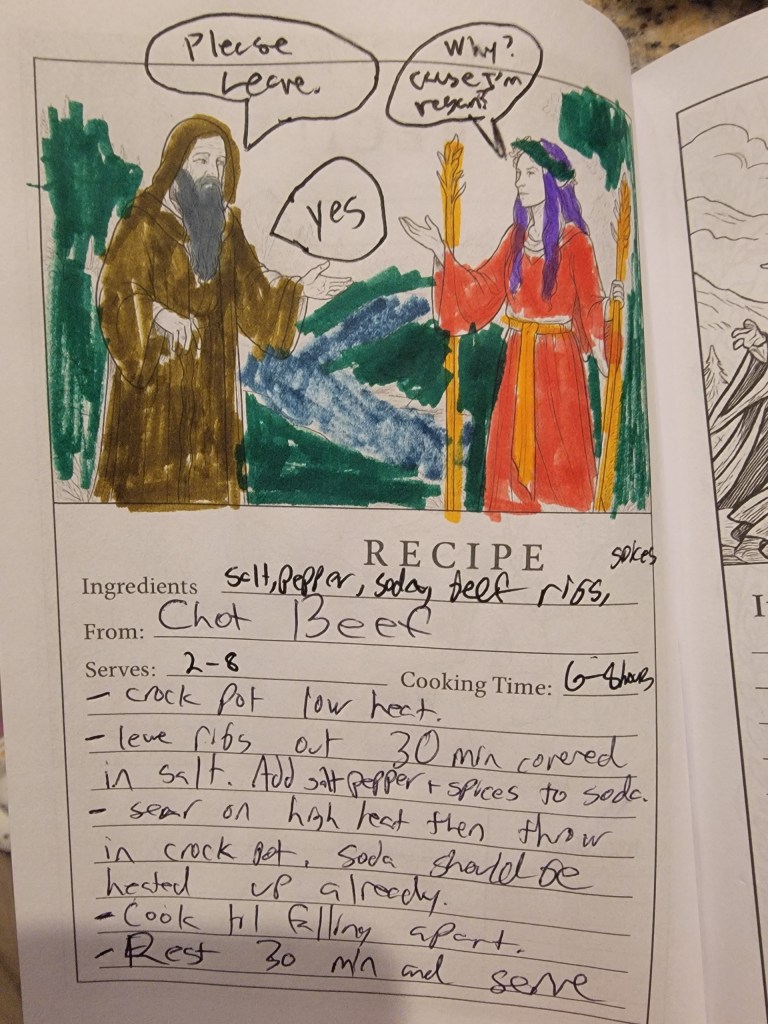 Please
Leave.
Why?
cause I'm
vegan?
yes
RECIPE
spices
Ingredients salt, pepper, soda, beef ribs,
From: Chot Beef
Serves: 2-8 Cooking Time: 6-8 hours
- crock pot low heat.
- leve ribs out 30 min covered
in salt. Add salt pepper + spices to soda.
- sear on high heat then throw
in crock pot. soda should be
heated up already.
- Cook til falling apart.
- Rest 30 min and serve